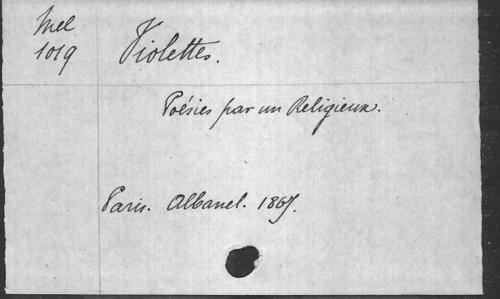 Mel
1019
Violettes.
Poésies par un Religieux.
Paris. Albanel. 1867.